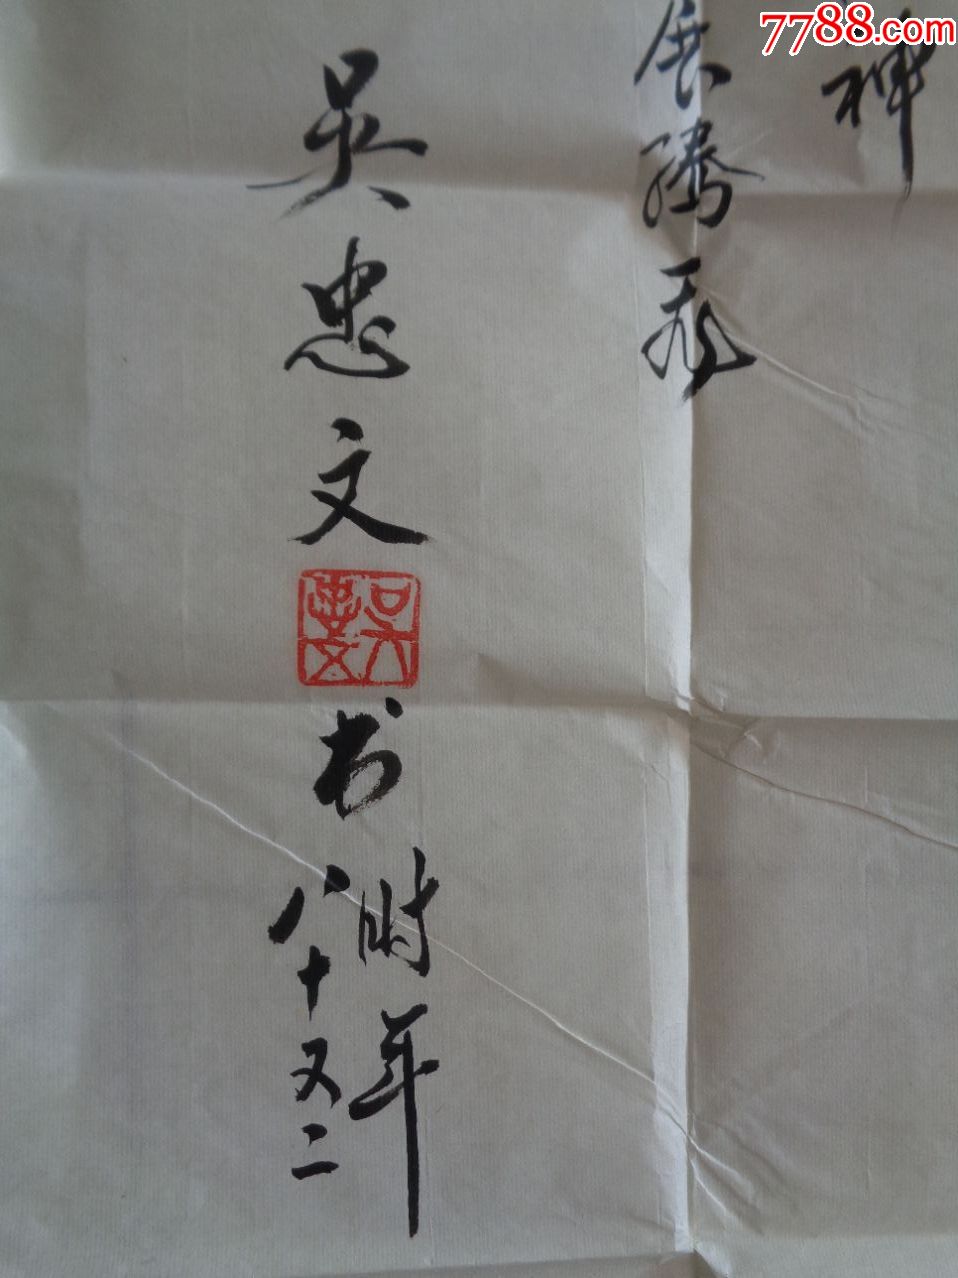 7788.com
神
展腾飞
吴忠文
吴忠文
书
时年
八十又二